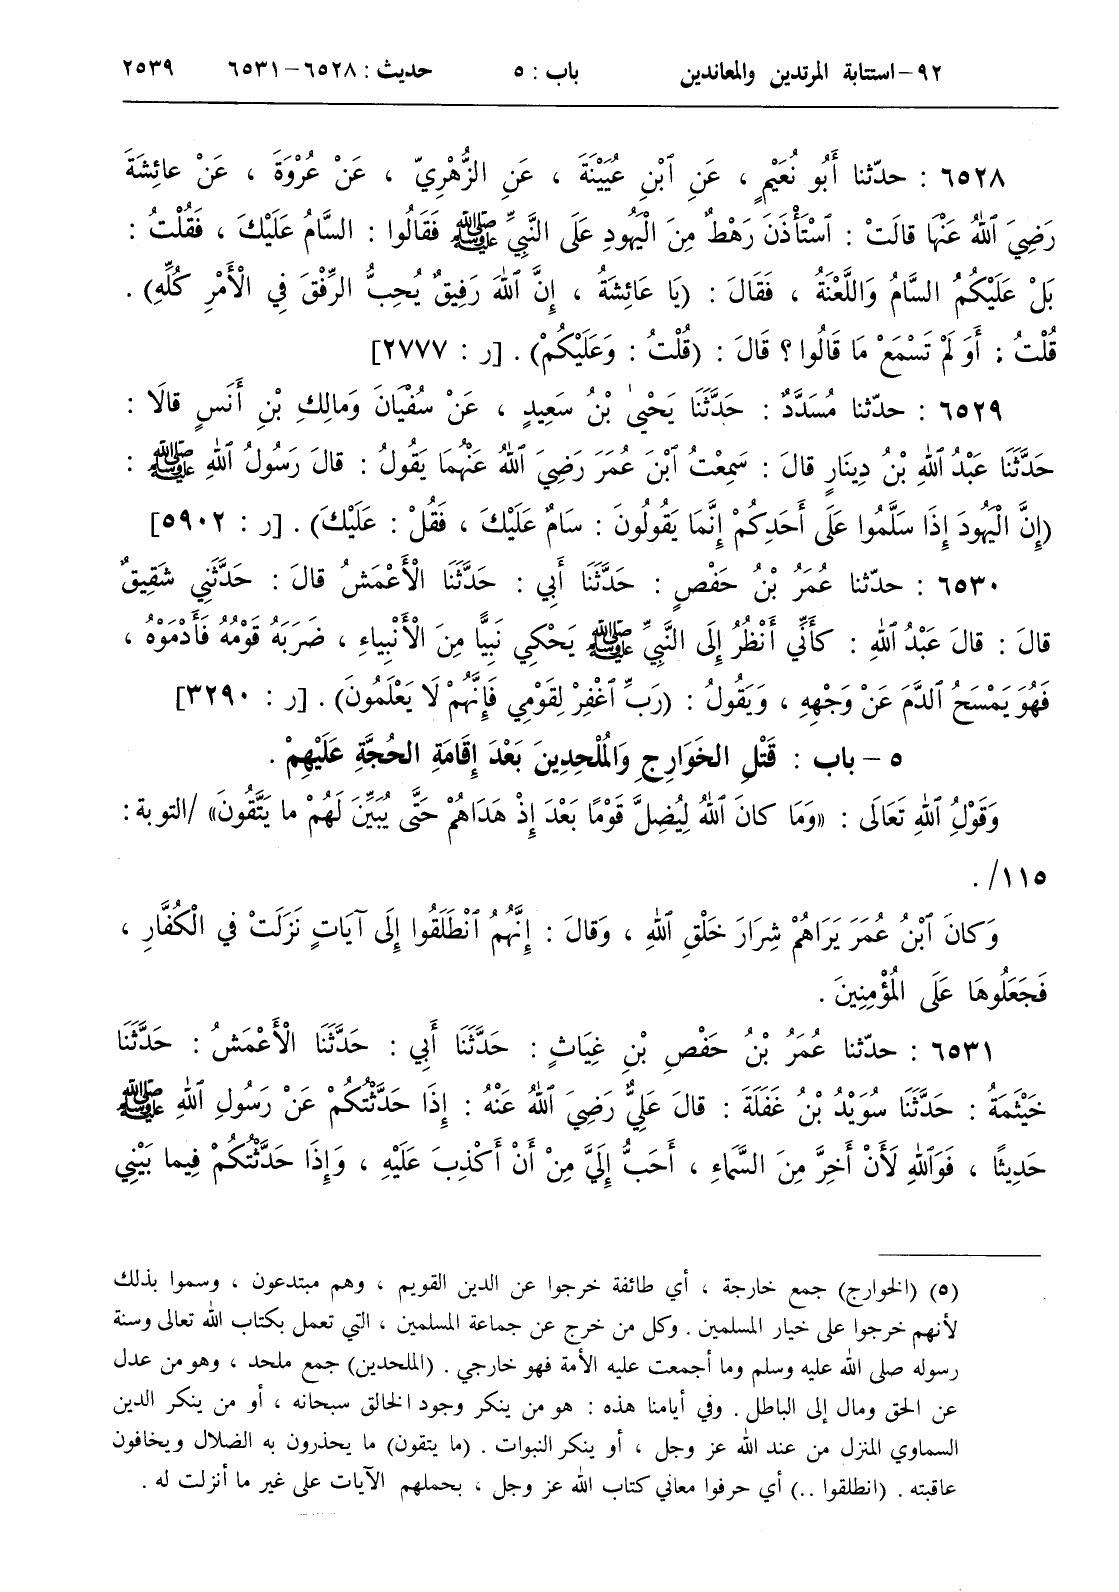 ٩٢-استتابة المرتدين والمعاندين باب : ٥ حديث : ٦٥٢٨-٦٥٣١ ٢٥٣٩
٦٥٢٨ : حدّثنا أَبُو نُعَيْمٍ ، عَنِ ٱبْنِ عُيَيْنَةَ ، عَنِ الزُّهْرِيِّ ، عَنْ عُرْوَةَ ، عَنْ عائِشَةَ
رَضِيَ ٱللهُ عَنْهَا قالَتْ : ٱسْتَأْذَنَ رَهْطٌ مِنَ الْيَهُودِ عَلَى النَّبِيِّ ﷺ فَقَالُوا : السَّامُ عَلَيْكَ ، فَقُلْتُ :
بَلْ عَلَيْكُمُ السَّامُ وَاللَّعْنَةُ ، فَقَالَ : (يَا عائِشَةُ ، إِنَّ ٱللهَ رَفِيقٌ يُحِبُّ الرِّفْقَ فِي الْأَمْرِ كُلِّهِ) .
قُلْتُ : أَوَ لَمْ تَسْمَعْ مَا قَالُوا ؟ قالَ : (قُلْتُ : وَعَلَيْكُمْ) . [ر : ٢٧٧٧]
٦٥٢٩ : حدّثنا مُسَدَّدٌ : حَدَّثَنَا يَحْيىٰ بْنُ سَعِيدٍ ، عَنْ سُفْيَانَ وَمالِكِ بْنِ أَنَسٍ قالَا :
حَدَّثَنَا عَبْدُ ٱللهِ بْنُ دِينَارٍ قالَ : سَمِعْتُ ٱبْنَ عُمَرَ رَضِيَ ٱللهُ عَنْهُما يَقُولُ : قالَ رَسُولُ ٱللهِ ﷺ :
(إِنَّ الْيَهُودَ إِذَا سَلَّمُوا عَلَى أَحَدِكُمْ إِنَّمَا يَقُولُونَ : سَامٌ عَلَيْكَ ، فَقُلْ : عَلَيْكَ) . [ر : ٥٩٠٢]
٦٥٣٠ : حدّثنا عُمَرُ بْنُ حَفْصٍ : حَدَّثَنَا أَبِي : حَدَّثَنَا الْأَعْمَشُ قالَ : حَدَّثَنِي شَقِيقٌ
قالَ : قالَ عَبْدُ ٱللهِ : كأَنِّي أَنْظُرُ إِلَى النَّبِيِّ ﷺ يَحْكِي نَبِيًّا مِنَ الْأَنْبِيَاءِ ، ضَرَبَهُ قَوْمُهُ فَأَدْمَوْهُ ،
فَهُوَ يَمْسَحُ ٱلدَّمَ عَنْ وَجْهِهِ ، وَيَقُولُ : (رَبِّ ٱغْفِرْ لِقَوْمِي فَإِنَّهُمْ لَا يَعْلَمُونَ) . [ر : ٣٢٩٠]
٥ - باب : قَتْلِ الخَوَارِجِ وَالمُلْحِدِينَ بَعْدَ إِقَامَةِ الحُجَّةِ عَلَيْهِمْ .
وَقَوْلُ ٱللهِ تَعَالَى : «وَمَا كانَ ٱللهُ لِيُضِلَّ قَوْمًا بَعْدَ إِذْ هَدَاهُمْ حَتَّى يُبَيِّنَ لَهُمْ ما يَتَّقُونَ» /التوبة :
١١٥/ .
وَكانَ ٱبْنُ عُمَرَ يَرَاهُمْ شِرَارَ خَلْقِ ٱللهِ ، وَقالَ : إِنَّهُمُ ٱنْطَلَقُوا إِلَى آيَاتٍ نَزَلَتْ في الْكُفَّارِ ،
فَجَعَلُوهَا عَلَى المُؤْمِنِينَ .
٦٥٣١ : حدّثنا عُمَرُ بْنُ حَفْصِ بْنِ غِيَاثٍ : حَدَّثَنَا أَبِي : حَدَّثَنَا الْأَعْمَشُ : حَدَّثَنَا
خَيْثَمَةُ : حَدَّثَنَا سُوَيْدُ بْنُ غَفَلَةَ : قالَ عَلِيٌّ رَضِيَ ٱللهُ عَنْهُ : إِذَا حَدَّثْتُكُمْ عَنْ رَسُولِ ٱللهِ ﷺ
حَدِيثًا ، فَوَٱللهِ لَأَنْ أَخِرَّ مِنَ السَّمَاءِ ، أَحَبُّ إِلَيَّ مِنْ أَنْ أَكْذِبَ عَلَيْهِ ، وَإِذَا حَدَّثْتُكُمْ فِيما بَيْنِي
(٥) (الخوارج) جمع خارجة ، أي طائفة خرجوا عن الدين القويم ، وهم مبتدعون ، وسموا بذلك
لأنهم خرجوا على خيار المسلمين . وكل من خرج عن جماعة المسلمين ، التي تعمل بكتاب الله تعالى وسنة
رسوله صلى الله عليه وسلم وما أجمعت عليه الأمة فهو خارجي . (الملحدين) جمع ملحد ، وهو من عدل
عن الحق ومال إلى الباطل . وفي أيامنا هذه : هو من ينكر وجود الخالق سبحانه ، أو من ينكر الدين
السماوي المنزل من عند الله عز وجل ، أو ينكر النبوات . (ما يتقون) ما يحذرون به الضلال ويخافون
عاقبته . (انطلقوا ..) أي حرفوا معاني كتاب الله عز وجل ، بحملهم الآيات على غير ما أنزلت له .